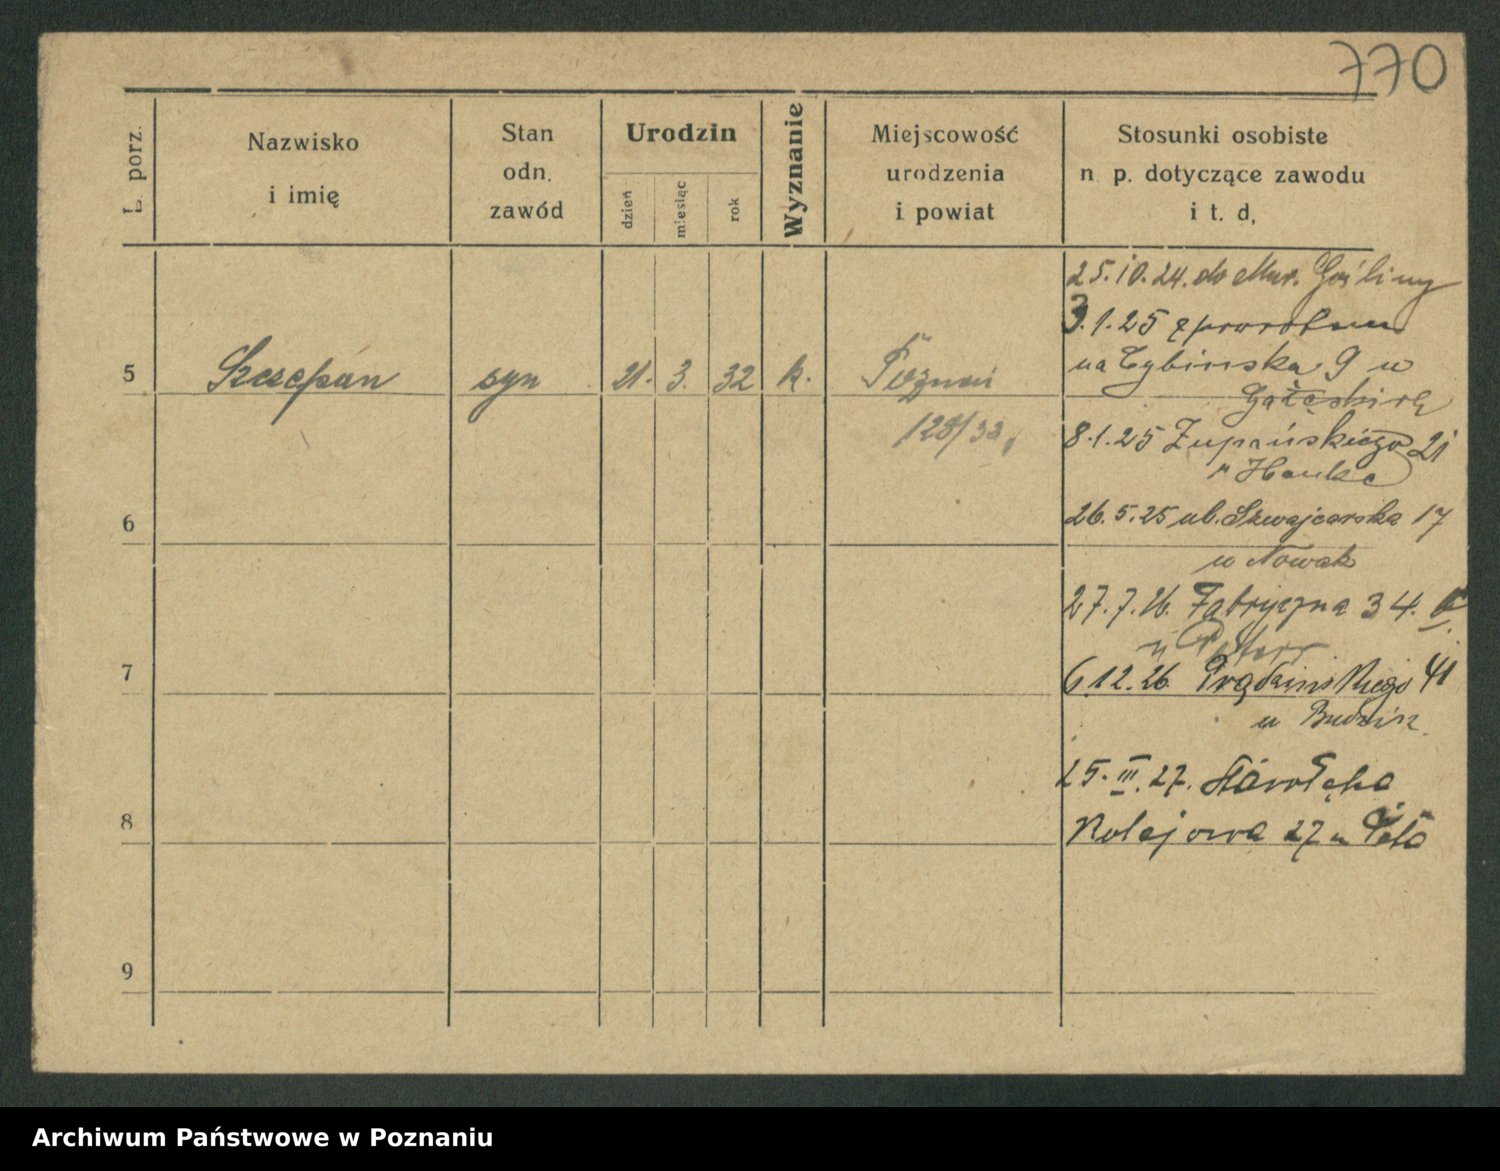 770
L. porz.
Nazwisko
i imię
Stan
odn.
zawód
Urodzin
dzień
miesiąc
rok
Wyznanie
Miejscowość
urodzenia
i powiat
Stosunki osobiste
n. p. dotyczące zawodu
i t. d.
25.10.24. do Mur. Gośliny
3.1.25 z powrotem
na Cybińska 9 u
5 Szczepan syn 21. 3. 32 k. Poznań
8.1.25 Żupańskiego 21
Hauke
6
26.5.25 ul. Szwajcarska 17
u Nowak
27.7.26. Fabryczna 34.
7
6.12.26. Prądzińskiego 41
u
25.III.27. Starołęka
8
Kolejowa 27 u
9
Archiwum Państwowe w Poznaniu